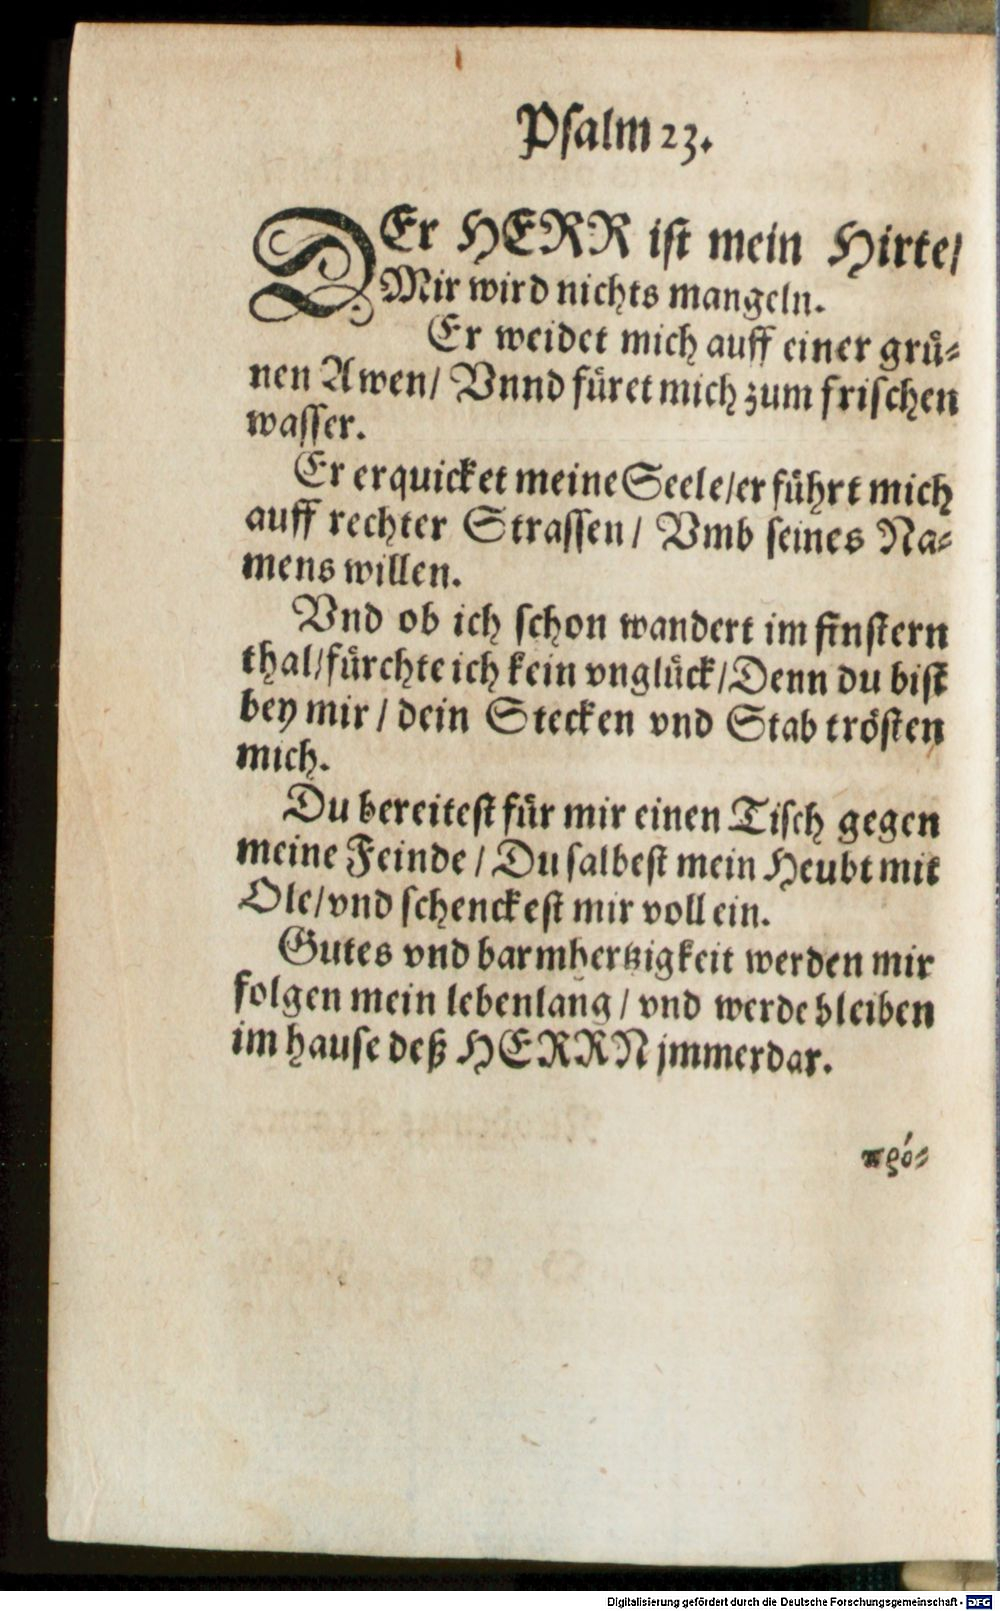 Psalm 23.
DEr HERR ist mein Hirte/
Mir wird nichts mangeln.
Er weidet mich auff einer grü-
nen Awen/ Vnnd füret mich zum frischen
wasser.
Er erquicket meine Seele/er führt mich
auff rechter Strassen/ Vmb seines Na-
mens willen.
Vnd ob ich schon wandert im finstern
thal/fürchte ich kein vnglück/Denn du bist
bey mir/ dein Stecken vnd Stab trösten
mich.
Du bereitest für mir einen Tisch gegen
meine Feinde/ Du salbest mein Heubt mit
Ole/vnd schenckest mir voll ein.
Gutes vnd barmhertzigkeit werden mir
folgen mein lebenlang/ vnd werde bleiben
im hause deß HERRN jmmerdar.
πρό-
Digitalisierung gefördert durch die Deutsche Forschungsgemeinschaft - DFG